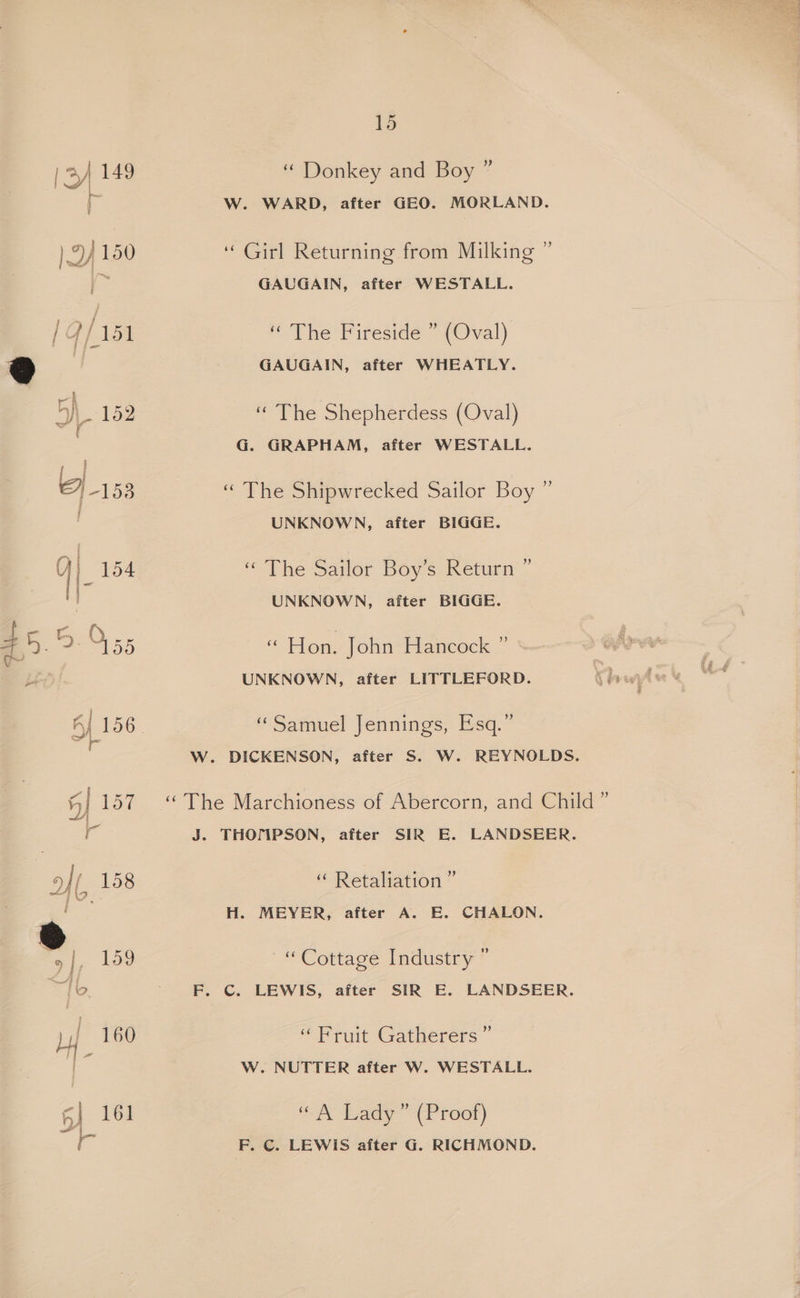 15
12/- 149 “ Donkey and Boy ”
W. WARD, after GEO. MORLAND.
12/- 150 “ Girl Returning from Milking ”
GAUGAIN, after WESTALL.
151 “ The Fireside ” (Oval)
GAUGAIN, after WHEATLY.
5/- 152 “ The Shepherdess (Oval)
G. GRAPHAM, after WESTALL.
153 “ The Shipwrecked Sailor Boy ”
UNKNOWN, after BIGGE.
154 “ The Sailor Boy’s Return ”
UNKNOWN, after BIGGE.
£5.5.0 155 “ Hon. John Hancock ”
UNKNOWN, after LITTLEFORD.
5/- 156 “Samuel Jennings, Esq.”
W. DICKENSON, after S. W. REYNOLDS.
5/- 157 “ The Marchioness of Abercorn, and Child ”
J. THOMPSON, after SIR E. LANDSEER.
2/6 158 “ Retaliation ”
H. MEYER, after A. E. CHALON.
2/6 159 “ Cottage Industry ”
F. C. LEWIS, after SIR E. LANDSEER.
4/- 160 “ Fruit Gatherers ”
W. NUTTER after W. WESTALL.
5/- 161 “ A Lady ” (Proof)
F. C. LEWIS after G. RICHMOND.